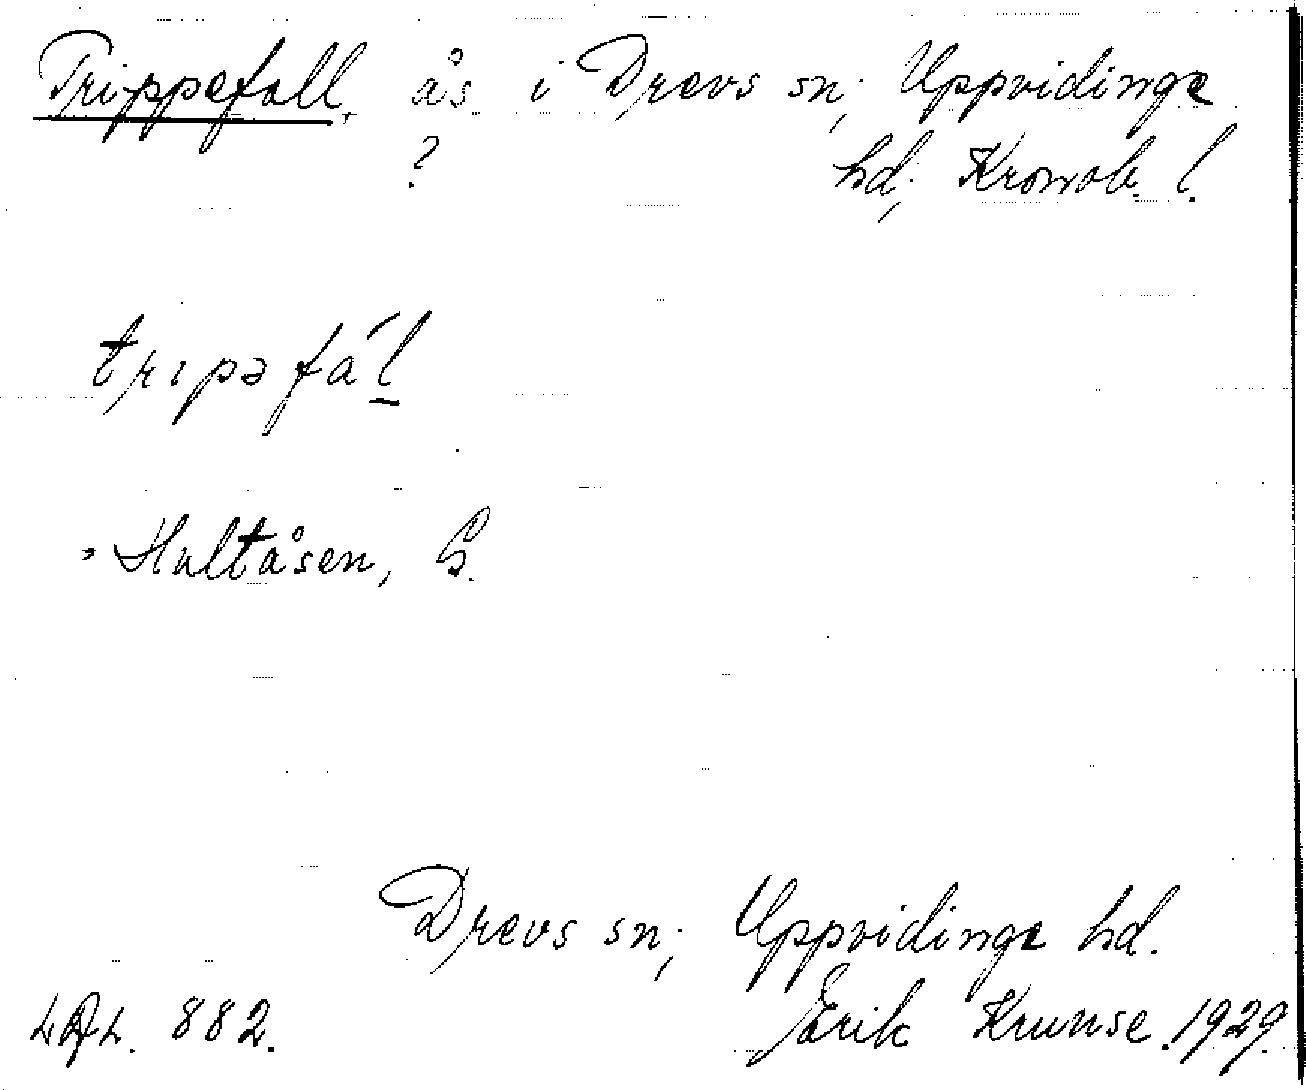 Trippefall, ås i Drevs sn; Uppvidinge
? hd; Kronob. l.
trɪpəfáḻ
Hultåsen, G.
Drevs sn; Uppvidinge hd.
882. Erik Krunse. 1929.